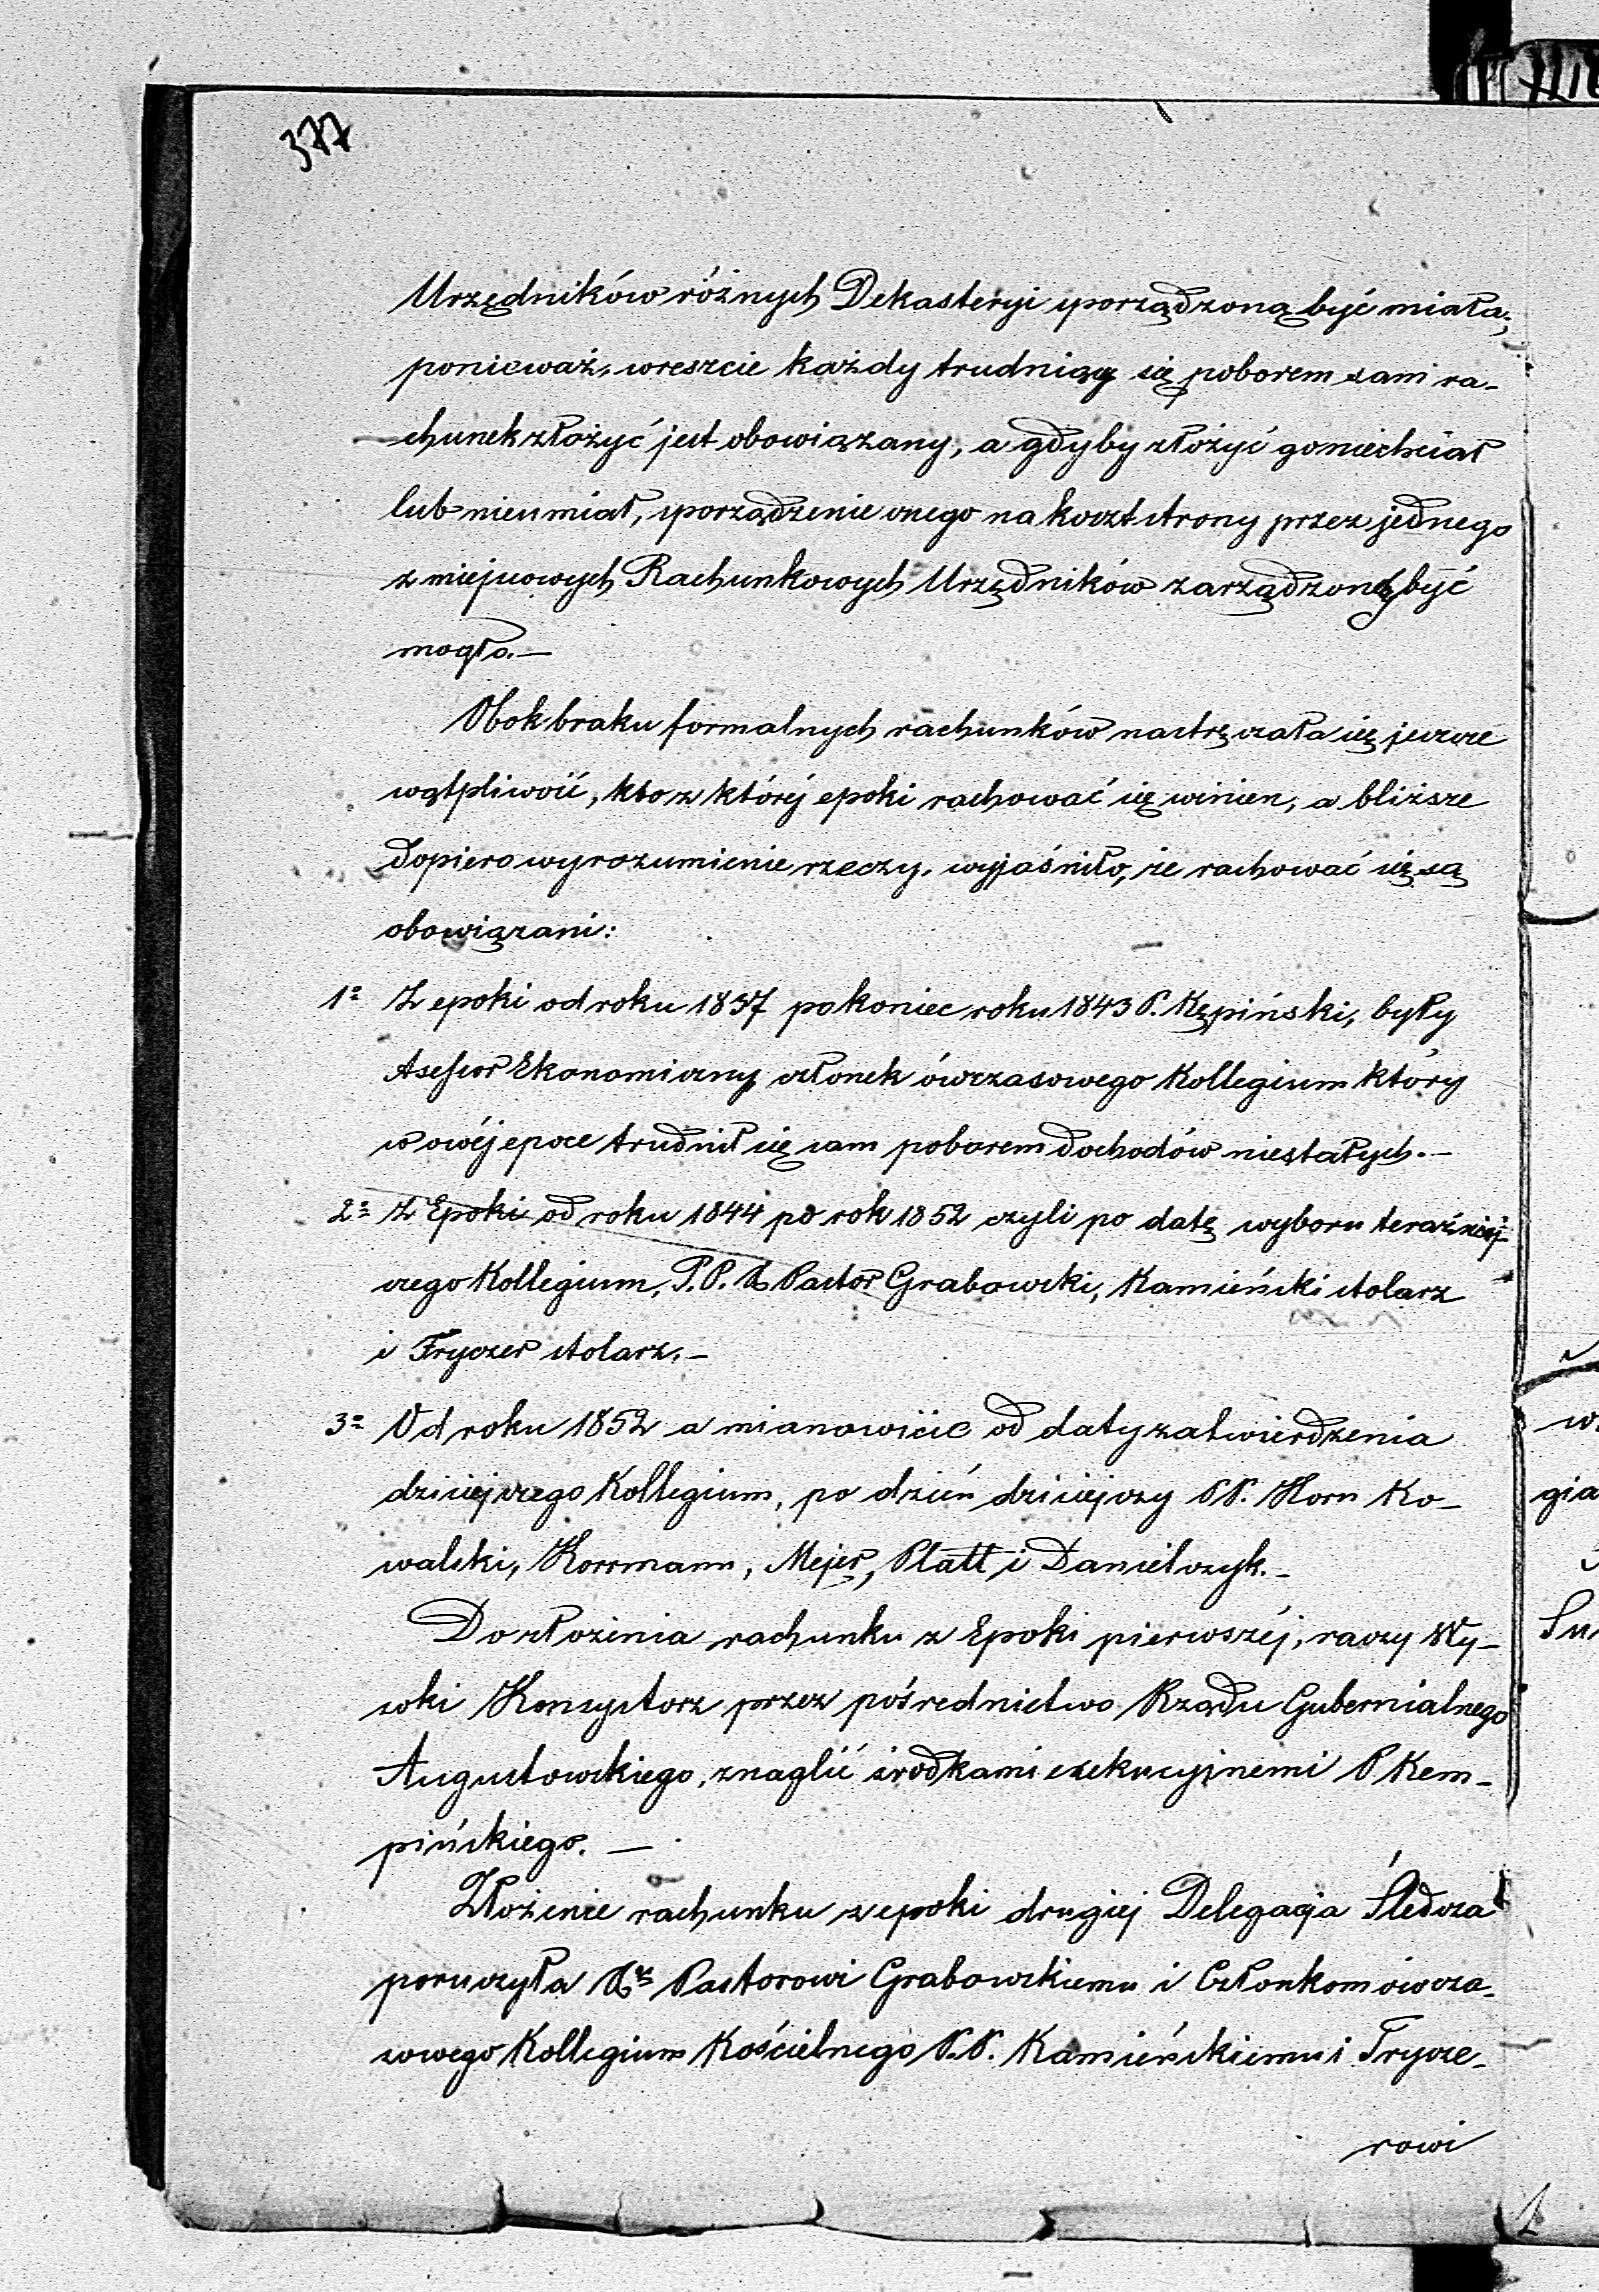 377
Urzędników różnych Dekasteryi sporządzoną być miała,
ponieważ, wreszcie każdy trudniący się poborem sam ra-
chunek złożyć jest obowiązany, a gdyby złożyć go niechciał
lub nieumiał, sporządzenie onego na koszt strony przez jednego
z miejscowych Rachunkowych Urzędników zarządzone być
mogło.—
Obok braku formalnych rachunków nastręczała się jeszcze
wątpliwość, kto z której epoki rachować się winien, a bliższe
dopiero wyrozumienie rzeczy, wyjaśniło, że rachować się są
obowiązani:
1º Z epoki od roku 1837 po koniec roku 1843 P. Kępiński, były
Assessor Ekonomiczny członek ówczasowego Kollegium który
w owéj epoce trudnił się sam poborem dochodów niestałych.—
2º Z Epoki od roku 1844 po rok 1852 czyli po datę wyboru teraźniej-
szego Kollegium, P.P. X Pastor Grabowski, Kamieński stolarz
i Fryczer stolarz.—
3º Od roku 1852 a mianowicie od daty zatwierdzenia
dzisiejszego Kollegium, po dzień dzisiejszy PP. Horn Ko-
walski, Korrmann, Mejer, Platt i Danielczyk.—
Do złożenia rachunku z Epoki pierwszéj, raczy Wy-
soki Konsystorz przez pośrednictwo Rządu Gubernialnego
Augustowskiego, znaglić środkami exekucyjnemi P Kem-
pińskiego.—
Złożenie rachunku z epoki drugiej Delegacja Śledcza
poruczyła Pastorowi Grabowskiemu i Członkom ówcza-
sowego Kollegium Kościelnego P.P. Kamieńskiemu i Frycze-
rowi
gia